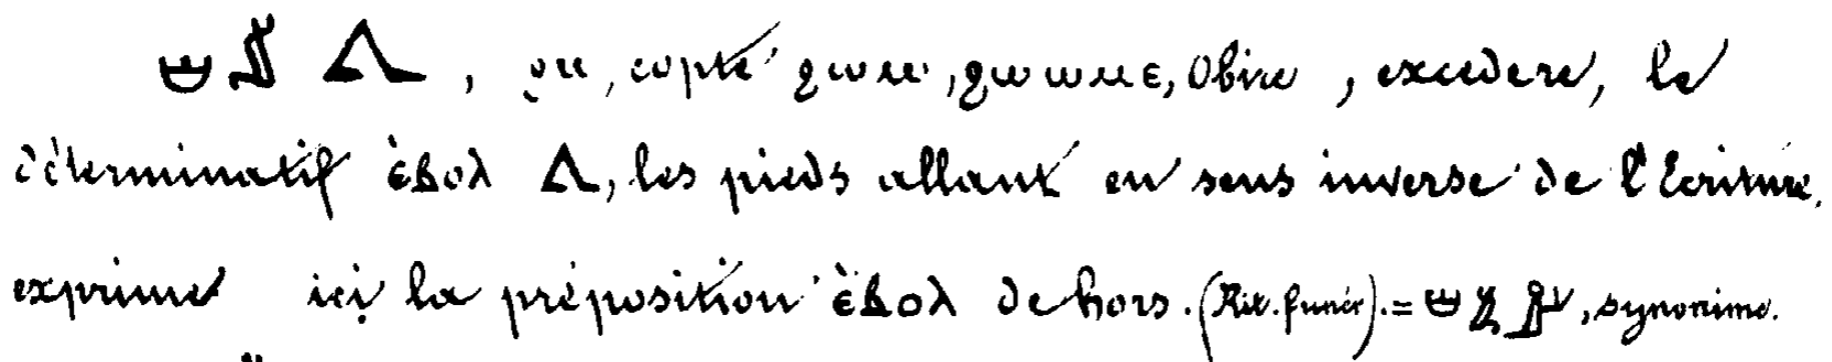 , ϩⲙ, copte ϩⲱⲙ, ϩⲱⲱⲙⲉ, Obire, excedere, le
déterminatif ⲉ̀ⲃⲟⲗ , les pieds allant en sens inverse de l'Ecriture,
exprime ici la préposition ⲉ̀ⲃⲟⲗ dehors. (Rit. funér). = , synonime.